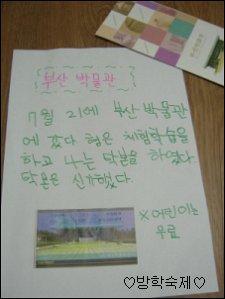 부산 박물관
7월 21에 부산 박물관
에 갔다 형은 체험학습을
하고 나는 탁본을 하였다.
탁본은 신기했다.
※ 어린이는
무료
♡방학숙제♡